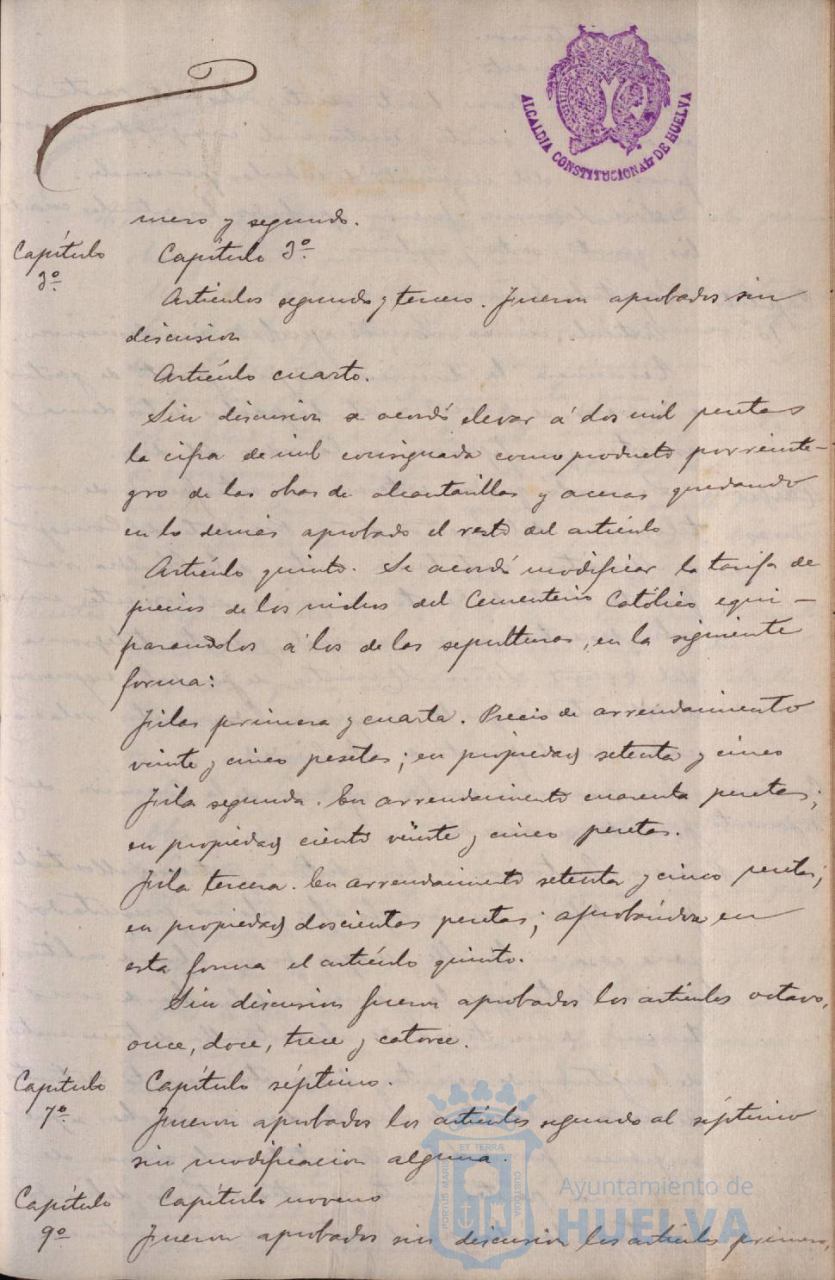 ALCALDIA CONSTITUCIONAL DE HUELVA
mero y segundo.
Capítulo 3º
Capítulo 3º
Artículos segundo y tercero. Fueron aprobados sin
discusion
Artículo cuarto.
Sin discusion se acordó elevar á dos mil pesetas
la cifra de mil consignada como producto por reinte-
gro de las obras de alcantarillas y aceras quedando
en lo demás aprobado el resto del artículo
Artículo quinto. Se acordó modificar la tarifa de
precios de los nichos del Cementerio Católico equi-
parandolos á los de las sepulturas, en la siguiente
forma:
Filas primera y cuarta. Precio de arrendamiento
veinte y cinco pesetas; en propiedad setenta y cinco
Fila segunda. En arrendamiento cuarenta pesetas;
en propiedad ciento veinte y cinco pesetas.
Fila tercera. En arrendamiento setenta y cinco pesetas;
en propiedad doscientas pesetas; aprobándose en
esta forma el artículo quinto.
Sin discusion fueron aprobados los artículos octavo,
once, doce, trece y catorce.
Capítulo 7º
Capítulo séptimo.
Fueron aprobados los artículos segundo al séptimo
sin modificacion alguna.
Capítulo 9º
Capítulo noveno
Fueron aprobados sin discusion los artículos primero,
PORTUS MARIS ET TERRAE CUSTODIA
Ayuntamiento de
HUELVA